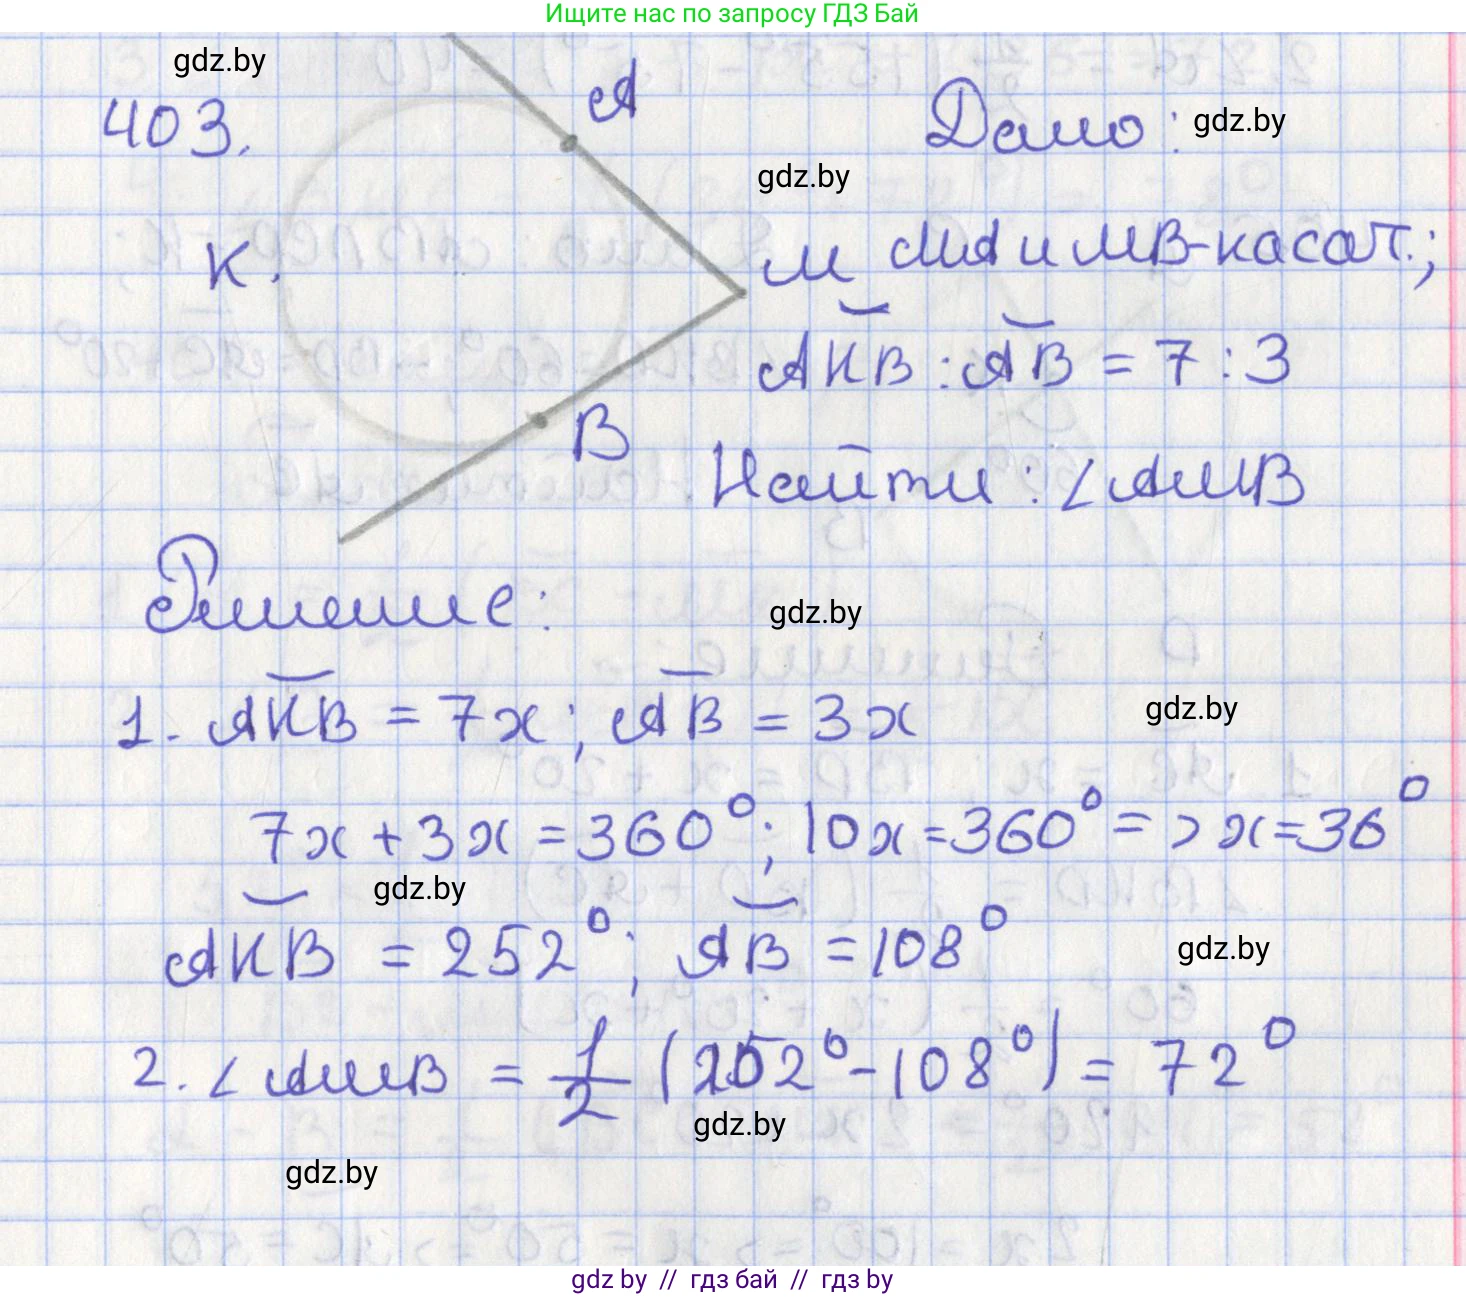 Ищите нас по запросу ГДЗ Бай
gdz.by
403.
A
Дано:
gdz.by
gdz.by
K
M
MA и MB-касат.;
AKB : AB = 7 : 3
B
Найти: ∠AMB
Решение:
gdz.by
1. AKB = 7x; AB = 3x
gdz.by
7x + 3x = 360°; 10x = 360° => x = 36°
gdz.by
AKB = 252°; AB = 108°
gdz.by
2. ∠AMB = 1/2 (252° - 108°) = 72°
gdz.by
gdz.by
gdz by // гдз бай // гдз by